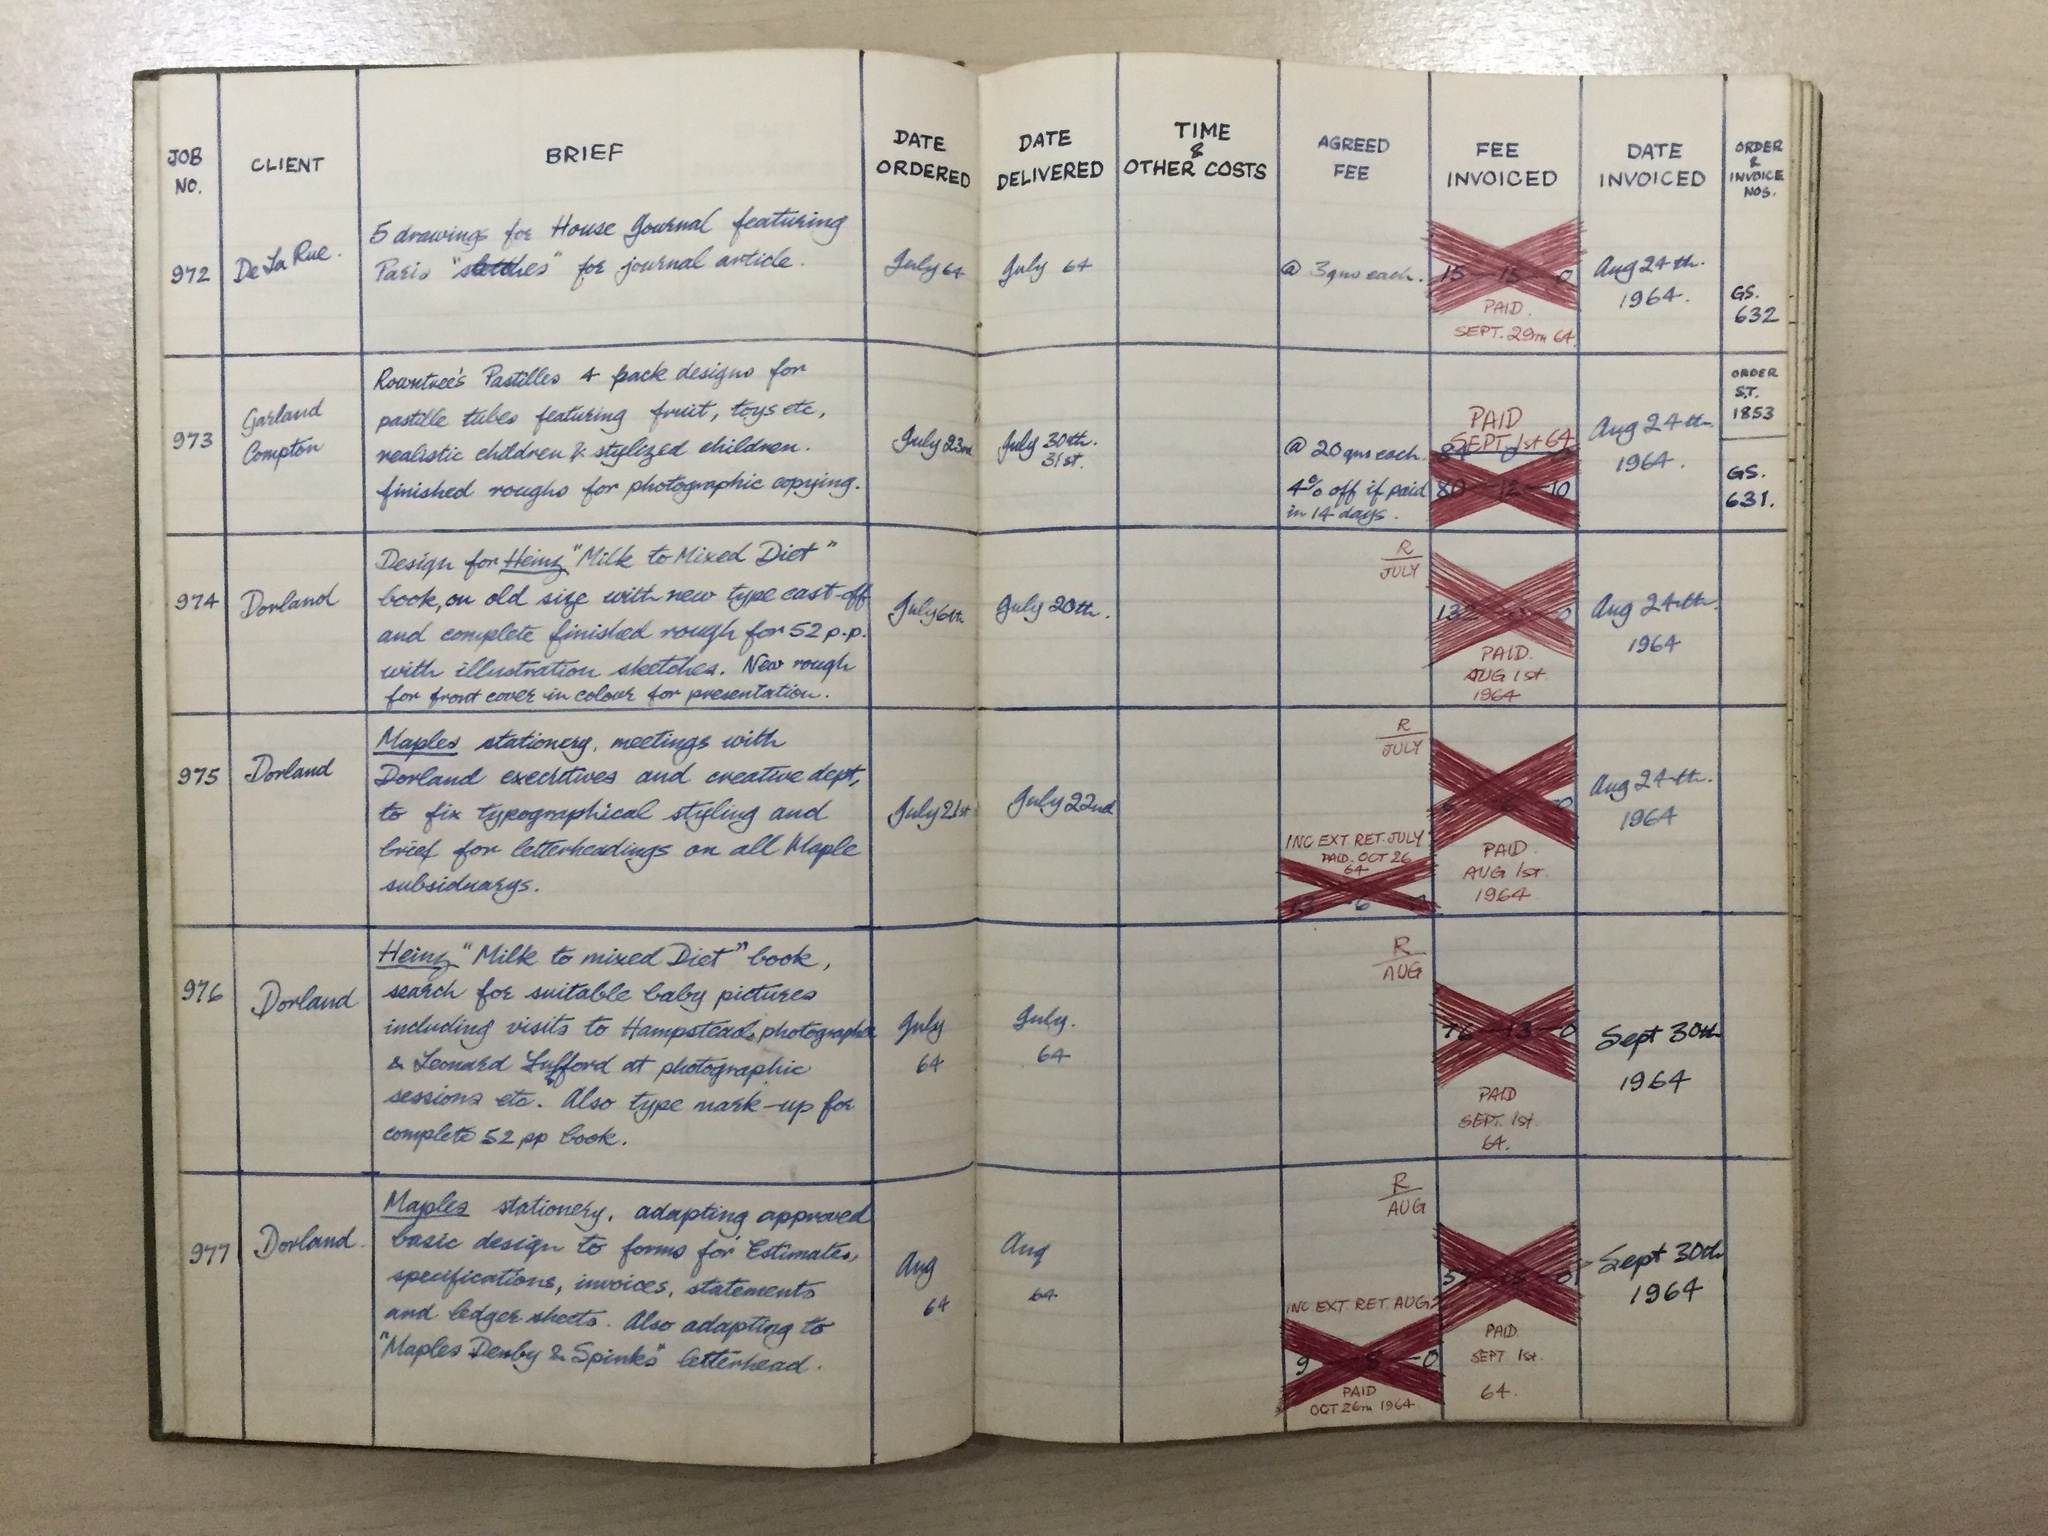 JOB NO.
CLIENT
BRIEF
DATE ORDERED
DATE DELIVERED
TIME & OTHER COSTS
AGREED FEE
FEE INVOICED
DATE INVOICED
ORDER & INVOICE NOS.
972
De La Rue.
5 drawings for House Journal featuring
Paris "sketches" for journal article.
July 64
July 64
@ 3gns each.
15 — 15 — 0
PAID.
SEPT. 29TH 64.
Aug 24th.
1964.
GS.
632
973
Garland
Compton
Rowntree's Pastilles 4 pack designs for
pastille tubes featuring fruit, toys etc,
realistic children & stylized children.
finished roughs for photographic copying.
July 23rd
July 30th.
31st.
@ 20 gns each.
4% off if paid
in 14 days.
PAID
SEPT 1st 64
84
80 — 12 — 10
Aug 24th.
1964.
ORDER
S.T.
1853
GS.
631.
974
Dorland
Design for Heinz "Milk to Mixed Diet"
book, on old size with new type cast-off
and complete finished rough for 52 p.p.
with illustration sketches. New rough
for front cover in colour for presentation.
July 6th
July 20th.
R
JULY
132 0
PAID.
AUG 1st.
1964
Aug 24th.
1964
975
Dorland
Maples stationery, meetings with
Dorland executives and creative dept,
to fix typographical styling and
brief for letterheadings on all Maple
subsiduarys.
July 21st
July 22nd
R
JULY
INC EXT. RET. JULY
PAID. OCT 26
64
6
PAID.
AUG 1st.
1964
Aug 24th.
1964
976
Dorland
Heinz "Milk to mixed Diet" book,
search for suitable baby pictures
including visits to Hampstead photographer
& Leonard Lufford at photographic
sessions etc. Also type mark-up for
complete 52 pp book.
July
64
July.
64
R
AUG
76 — 13 — 0
PAID
SEPT. 1st.
64.
Sept 30th
1964
977
Dorland.
Maples stationery, adapting approved
basic design to forms for Estimates,
specifications, invoices, statements
and ledger sheets. Also adapting to
"Maples Denby & Spinks" letterhead.
Aug
64
Aug
64
R
AUG
INC EXT. RET. AUG
9 — 5 — 0
PAID
OCT 26TH 1964.
5 0
PAID.
SEPT 1st.
64.
Sept 30th
1964